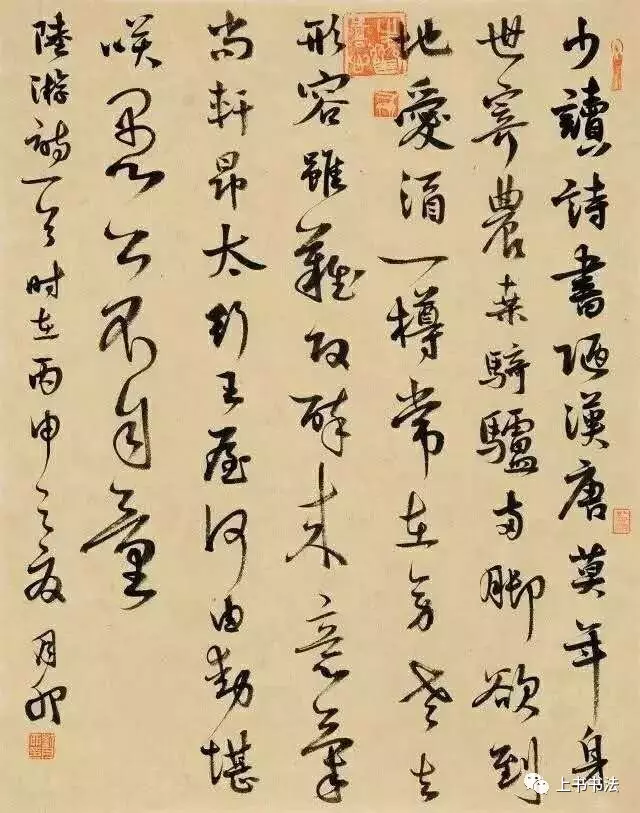 少讀詩書陋漢唐莫年身
世寄農桒騎驢兩脚欲到
地愛酒一樽常在旁老去
形容雖改醉来意氣
尚軒昂太行王屋何由動堪
咲愚公不自量
陸游詩一首时在丙申之夏月
上书书法